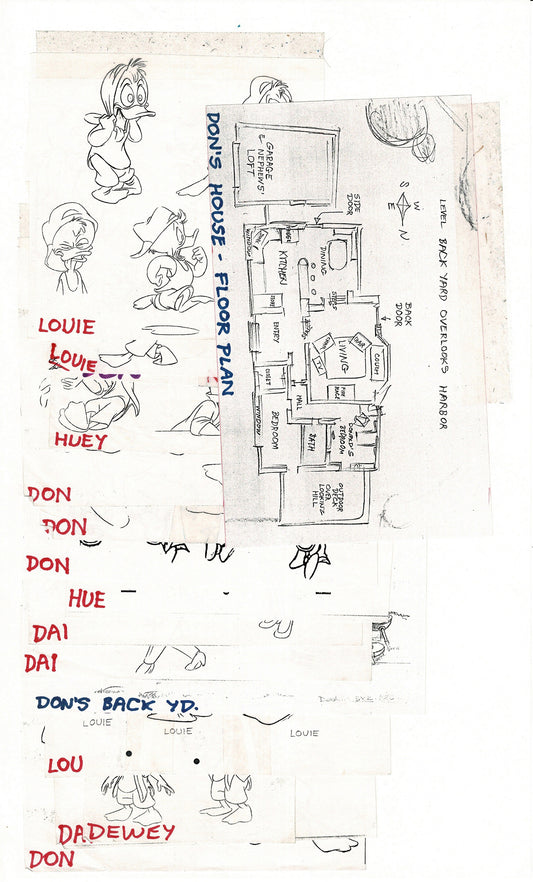 DON'S HOUSE - FLOOR PLAN
LEVEL BACK YARD OVERLOOKS HARBOR
S W E N
GARAGE
& NEPHEWS'
LOFT
SIDE
DOOR
BACK
DOOR
DINING
KITCHEN
STEPS
LIVING
CHAIR
COUCH
T.V.
ENTRY
CLOSET
HALL
BEDROOM
BATH
DONALD'S
BEDROOM
WINDOW
OUTDOOR
DECK
OVER
LOOKING
HILL
LOUIE
LOUIE
HUEY
DON
DON
DON
HUE
DAI
DAI
DON'S BACK YD.
LOUIE
LOUIE
LOUIE
LOU
DADEWEY
DON